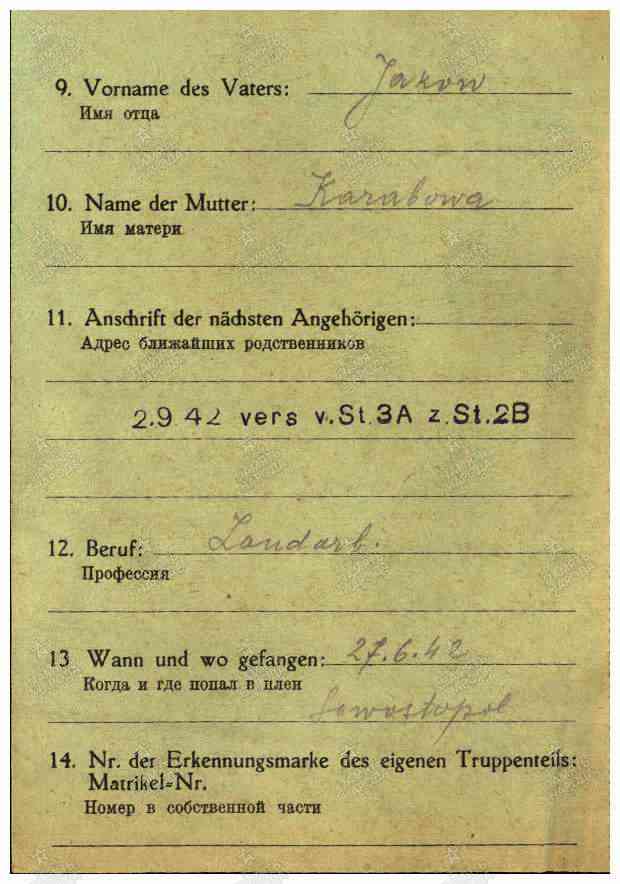 9. Vorname des Vaters: Jakow
Имя отца
10. Name der Mutter: Karabowa
Имя матери
11. Anschrift der nächsten Angehörigen:
Адрес ближайших родственников
2.9 42 vers v.St.3A z.St.2B
12. Beruf: Landarb.
Профессия
13 Wann und wo gefangen: 27.6.42
Когда и где попал в плен
Sewostopol
14. Nr. der Erkennungsmarke des eigenen Truppenteils:
Matrikel=Nr.
Номер в собственной части